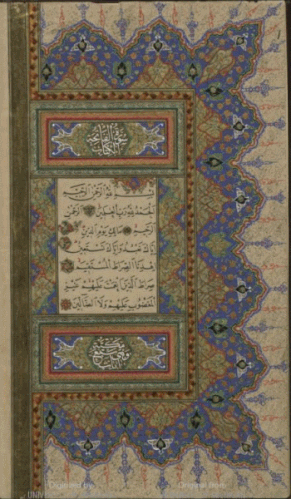 الفاتحة
الكتاب
بسم الله الرحمن الرحيم
الحمد لله رب العلمين الرحمن
الرحيم مالك يوم الدين
اياك نعبد واياك نستعين
اهدنا الصراط المستقيم
صراط الذين انعمت عليهم غير
المغضوب عليهم ولا الضالين
Digitized by
Original from